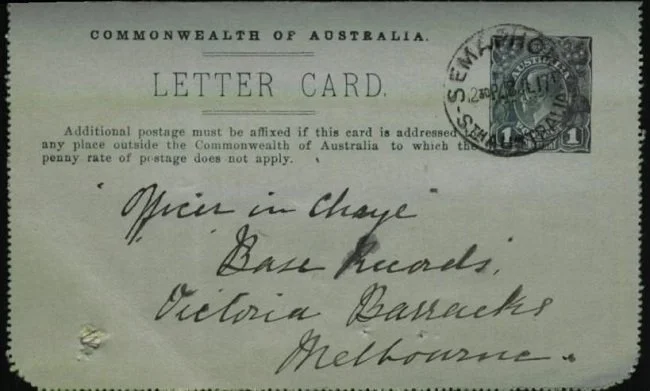 COMMONWEALTH OF AUSTRALIA.
LETTER CARD.
Additional postage must be affixed if this card is addressed
any place outside the Commonwealth of Australia to which the
penny rate of postage does not apply.
SEMAPHO
STH AUSTRALIA
AUSTRALIA
1 1
"Officer in Charge"
Base Records,
Victoria Barracks
Melbourne.